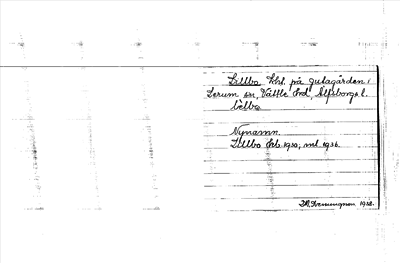 Lillbo, lht. på Gutagården i
Lerum sn, Vättle hd, Älfsborgs l.
Nynamn.
Lillbo Jrb. 1930, ml 1936.
1938.